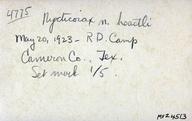 4775 Nycticorax n. hoactli
May 20, 1923 - R.D. Camp
Cameron Co., Tex.
Set mark 1/5.